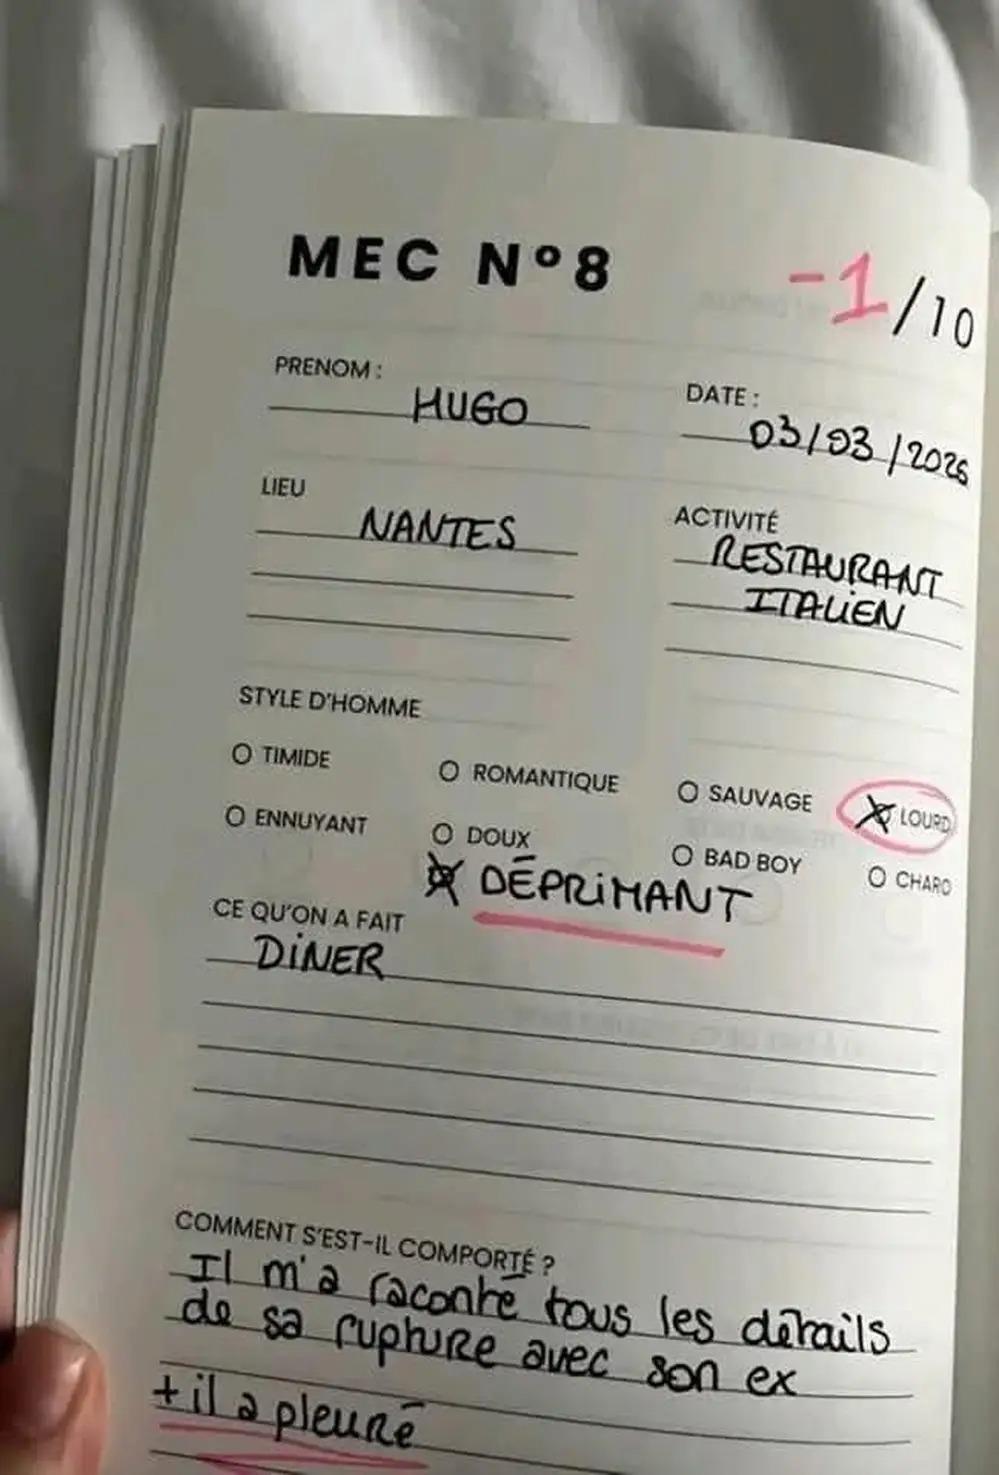 MEC N°8
-1/10
PRENOM :
HUGO
DATE :
03/03/2026
LIEU
NANTES
ACTIVITÉ
RESTAURANT
ITALIEN
STYLE D'HOMME
TIMIDE
ROMANTIQUE
SAUVAGE
LOURD
ENNUYANT
DOUX
BAD BOY
CHARO
DÉPRIMANT
CE QU'ON A FAIT
DINER
COMMENT S'EST-IL COMPORTÉ ?
Il m'a raconté tous les détails
de sa rupture avec son ex
+ il a pleuré